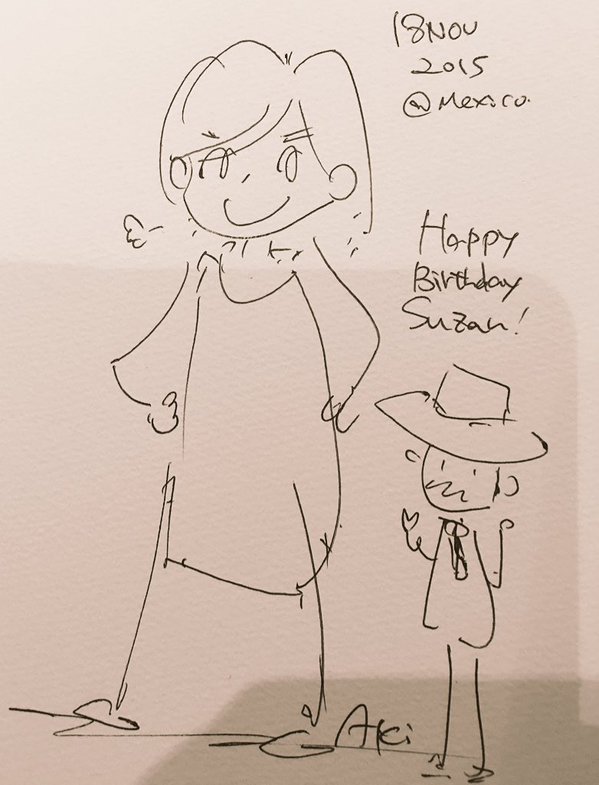 18 NOV
2015
@Mexico.
Happy
Birthday
Suzan!
Aki